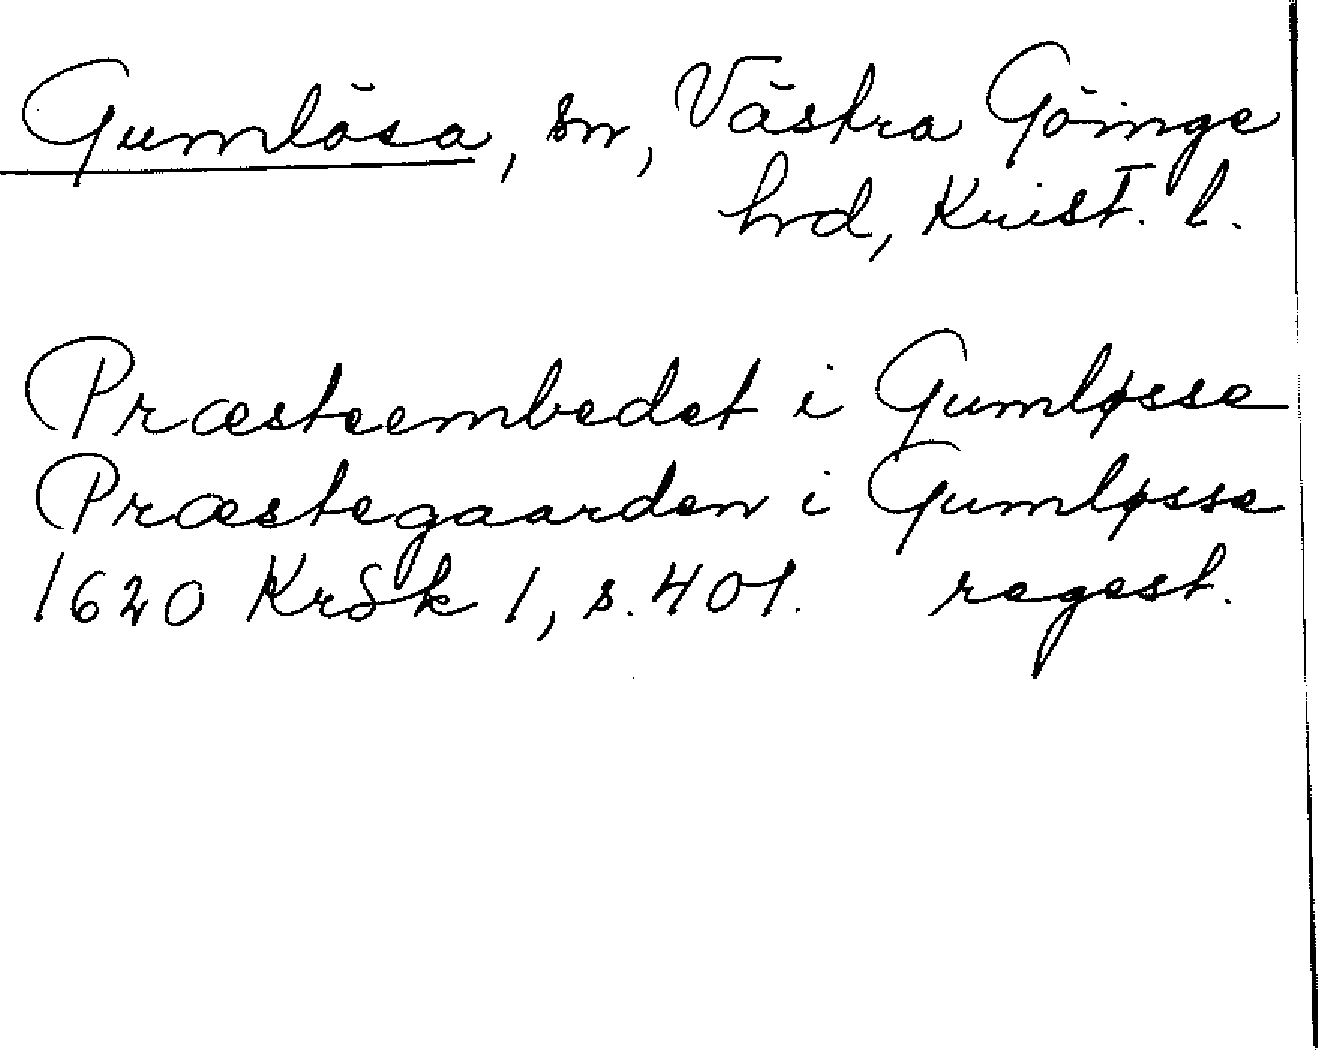 Gumlösa, sn, Västra Göinge
hrd, Krist. l.
Præsteembedet i Gumløsse
Præstegaarden i Gumløsse
1620 KrSk 1, s. 401. regest.